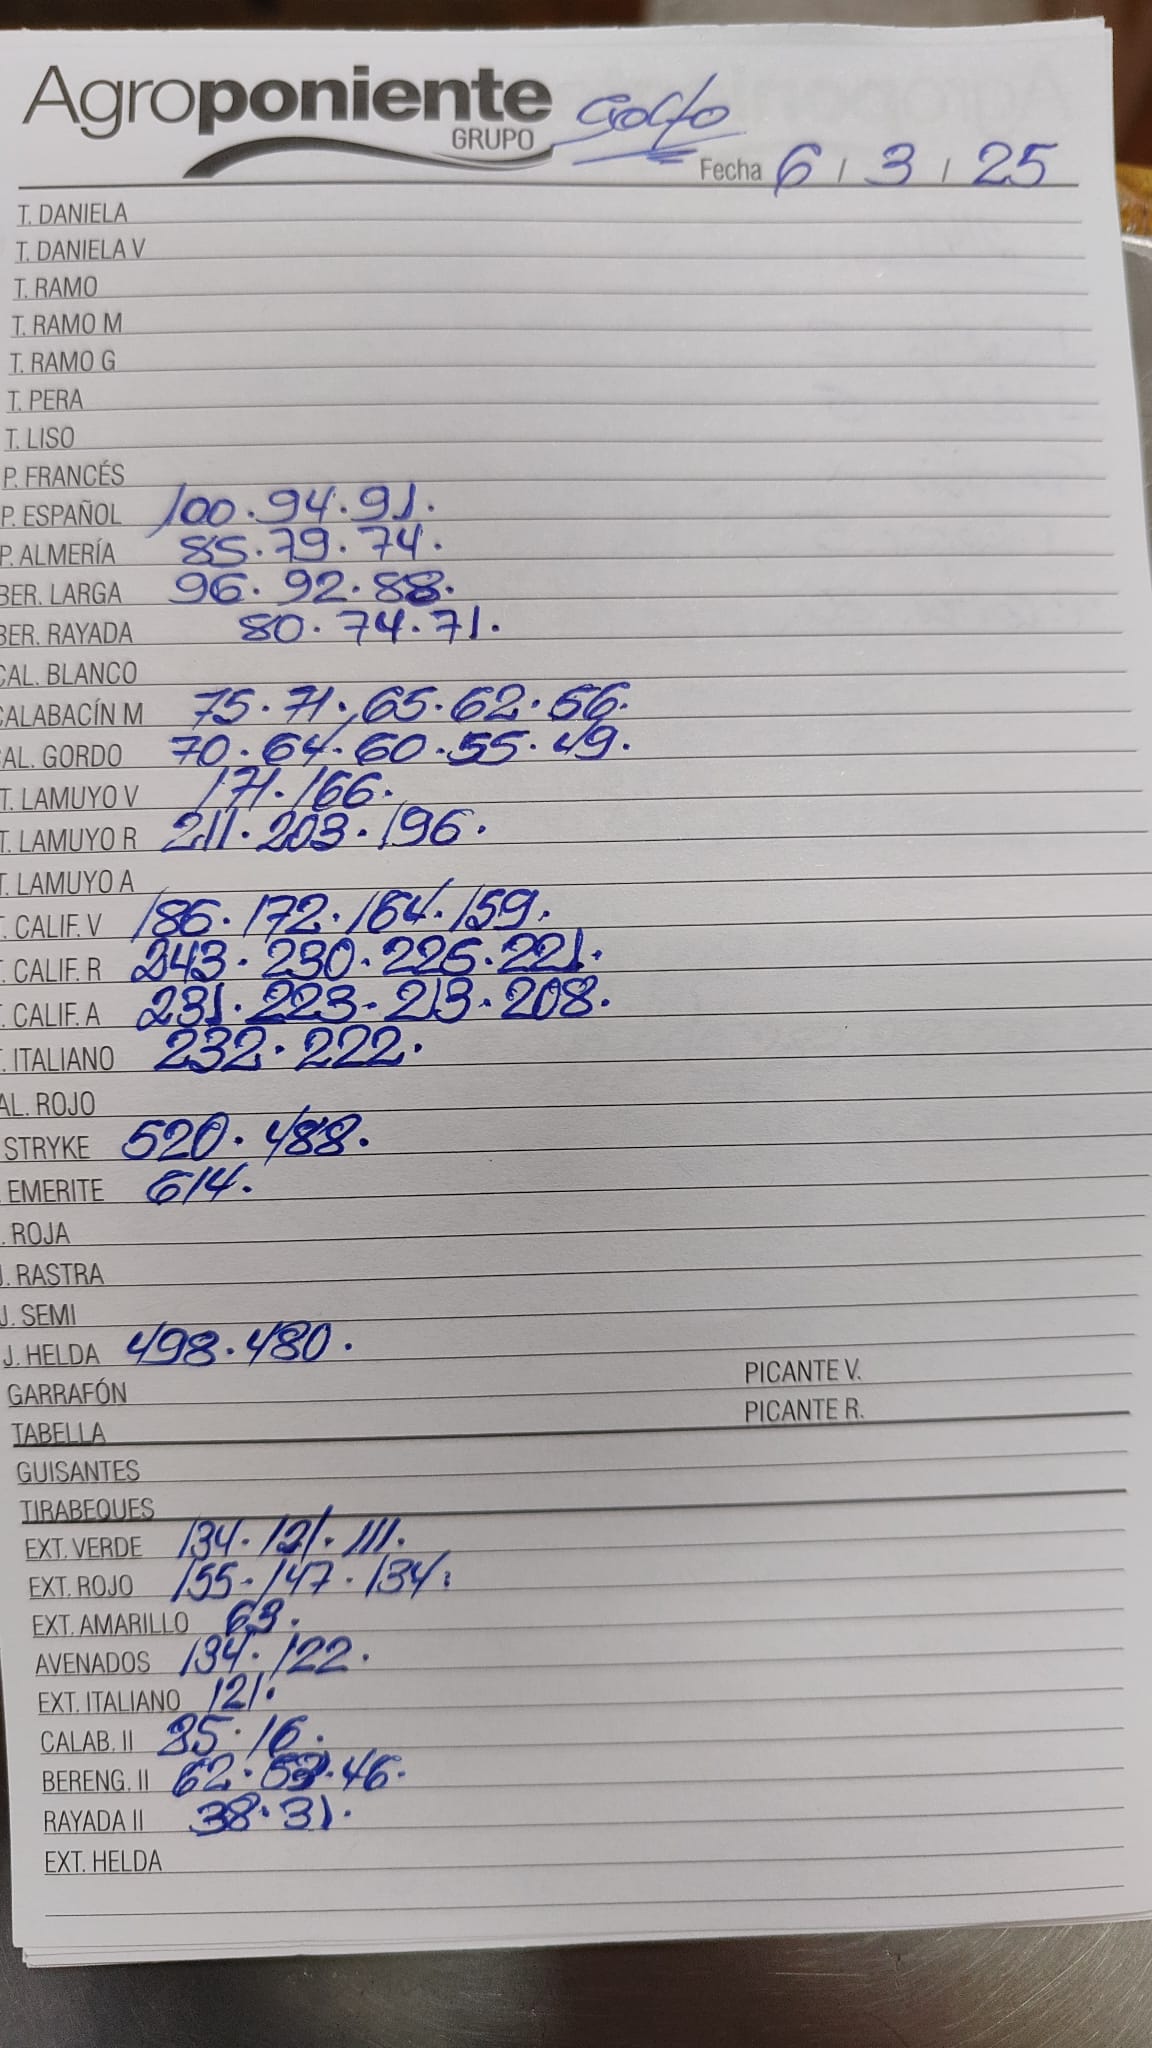 Agroponiente
GRUPO
Golfo
Fecha 6 / 3 / 25
T. DANIELA
T. DANIELA V
T. RAMO
T. RAMO M
T. RAMO G
T. PERA
T. LISO
P. FRANCÉS
P. ESPAÑOL 100. 94. 91.
P. ALMERÍA 85. 79. 74.
BER. LARGA 96. 92. 88.
BER. RAYADA 80. 74. 71.
CAL. BLANCO
CALABACÍN M 75. 71. 65. 62. 56.
AL. GORDO 70. 64. 60. 55. 49.
T. LAMUYO V 171. 166.
T. LAMUYO R 211. 203. 196.
T. LAMUYO A
. CALIF. V 186. 172. 164. 159.
. CALIF. R 243. 230. 226. 221.
. CALIF. A 231. 223. 213. 208.
. ITALIANO 232. 222.
AL. ROJO
STRYKE 520. 488.
. EMERITE 614.
. ROJA
J. RASTRA
J. SEMI
J. HELDA 498. 480.
GARRAFÓN PICANTE V.
TABELLA PICANTE R.
GUISANTES
TIRABEQUES
EXT. VERDE 134. 121. 111.
EXT. ROJO 155. 147. 134.
EXT. AMARILLO 63.
AVENADOS 134. 122.
EXT. ITALIANO 121.
CALAB. II 35. 16.
BERENG. II 62. 46.
RAYADA II 38. 31.
EXT. HELDA